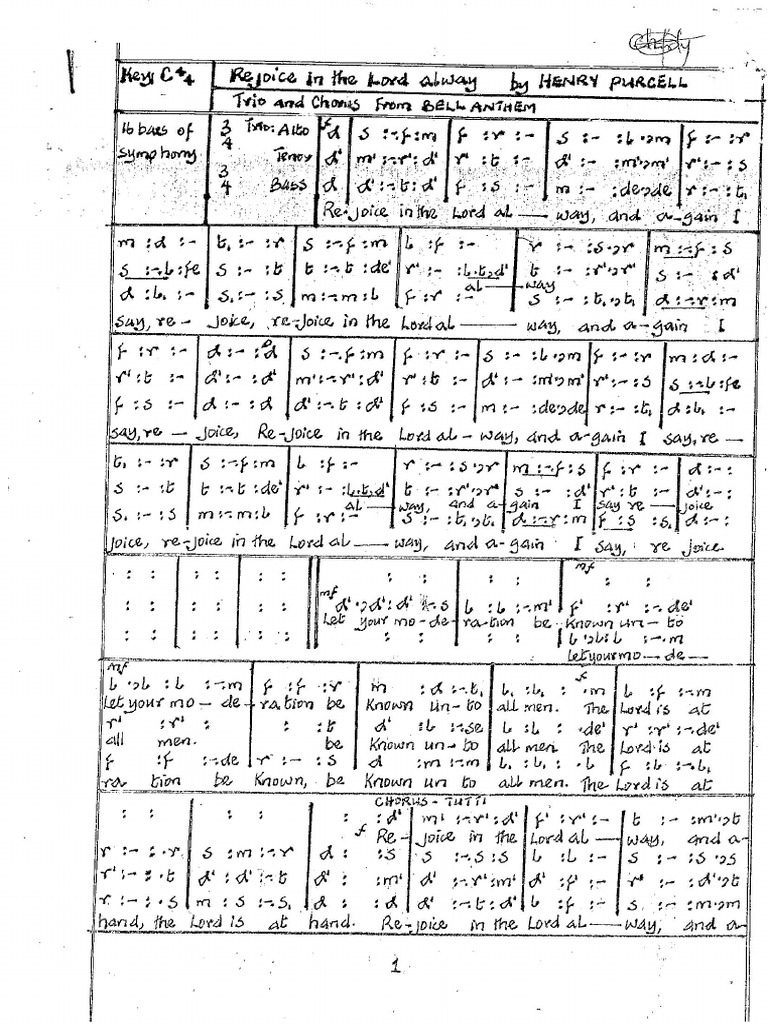 Key C 4/4 Rejoice in the Lord alway by HENRY PURCELL
Trio and Chorus From BELL ANTHEM
16 bars of symphony
3 4 Trio: Alto f d | s :-.f:m | f :r :- | s :- :l.,m | f :- :r
Tenor d' | m' :-.r':d' | r' :t :- | d' :- :m'.,m' | r' :- :s
3 4 Bass d | d' :-.t:d' | f :s :- | m :- :de.,de | r :- :t,
Re-joice in the Lord al — way, and a-gain I
m :d :- | t, :- :r | s :-.f:m | l :f :- | r :- :s.,r | m :-.f:s
s :-.l:fe | s :- :t | t :-.t:de' | r' :- :l.t,d' | t :- :r'.,r' | s :- :d'
al — way
d :l, :- | s, :- :s | m :-.m:l | f :r :- | s :- :t,.,t, | d :-.r:m
say, re - joice, re-joice in the Lord al — way, and a-gain I
f :r :- | d :- :d | s :-.f:m | f :r :- | s :- :l.,m | f :- :r | m :d :-
r' :t :- | d' :- :d' | m' :-.r':d' | r' :t :- | d' :- :m'.,m' | r' :- :s | s :-.l:fe
f :s :- | d :- :d | d' :-.t:d' | f :s :- | m :- :de.,de | r :- :t, | d :l, :-
say, re — joice, Re-joice in the Lord al - way, and a-gain I say, re —
t, :- :r | s :-.f:m | l :f :- | r :- :s.,r | m :-.f:s | f :r :- | d :- :
s :- :t | t :-.t:de' | r' :- :l.t,d' | t :- :r'.,r' | s :- :d' | r' :t :- | d' :- :
al — way, and a-gain I say re — joice
s, :- :s | m :-.m:l | f :r :- | s :- :t,.,t, | d :-.r:m | f :s :s, | d :- :
joice, re-joice in the Lord al — way, and a-gain I say, re joice.
: : | : : | : : | : : | : : | mf : :
: : | : : | : : | mf d'.,d':d' :-.s | l :l :-.m' | f' :r' :-.de'
Let your mo-de - ration be known un-to
: : | : : | : : | : : | : : | l.,l:l :-.m
let your mo — de —
mf
l.,l:l :-.m | f :f :r | m :d :-.t, | l, :l, : f .m | l :f :-.m
Let your mo - de - ration be known un-to all men. The Lord is at
r' :r' : | : :t | d' :l :-.se | l :l : .de' | r' :r' :-.de'
all men. be known un-to all men. The Lord is at
f :f :-.de | r :- :s | d :m :-.m | l, :l, : .l | f :l :-.l,
ra tion be known, be known un to all men. The Lord is at
CHORUS - TUTTI
: : | : : | : f :d' | m' :-.r':d' | f' :r' :- | t :- :m'.,t
Re - joice in the Lord al — way, and a-
r :- :-.r | s :m :-.r | d : :s | s :-.s:s | l :l :- | s :- :s.,s
r' :- :-.t | d' :d' :-.t | d' : :m' | d' :-.r':m' | d' :f' :- | r' :- :d'.,t
r :- :-.s | m :s :-.s, | d : :d | d' :-.t:d' | l :f :- | s :- :m.,m
hand, the Lord is at hand. Rejoice in the Lord al — way, and a-
1